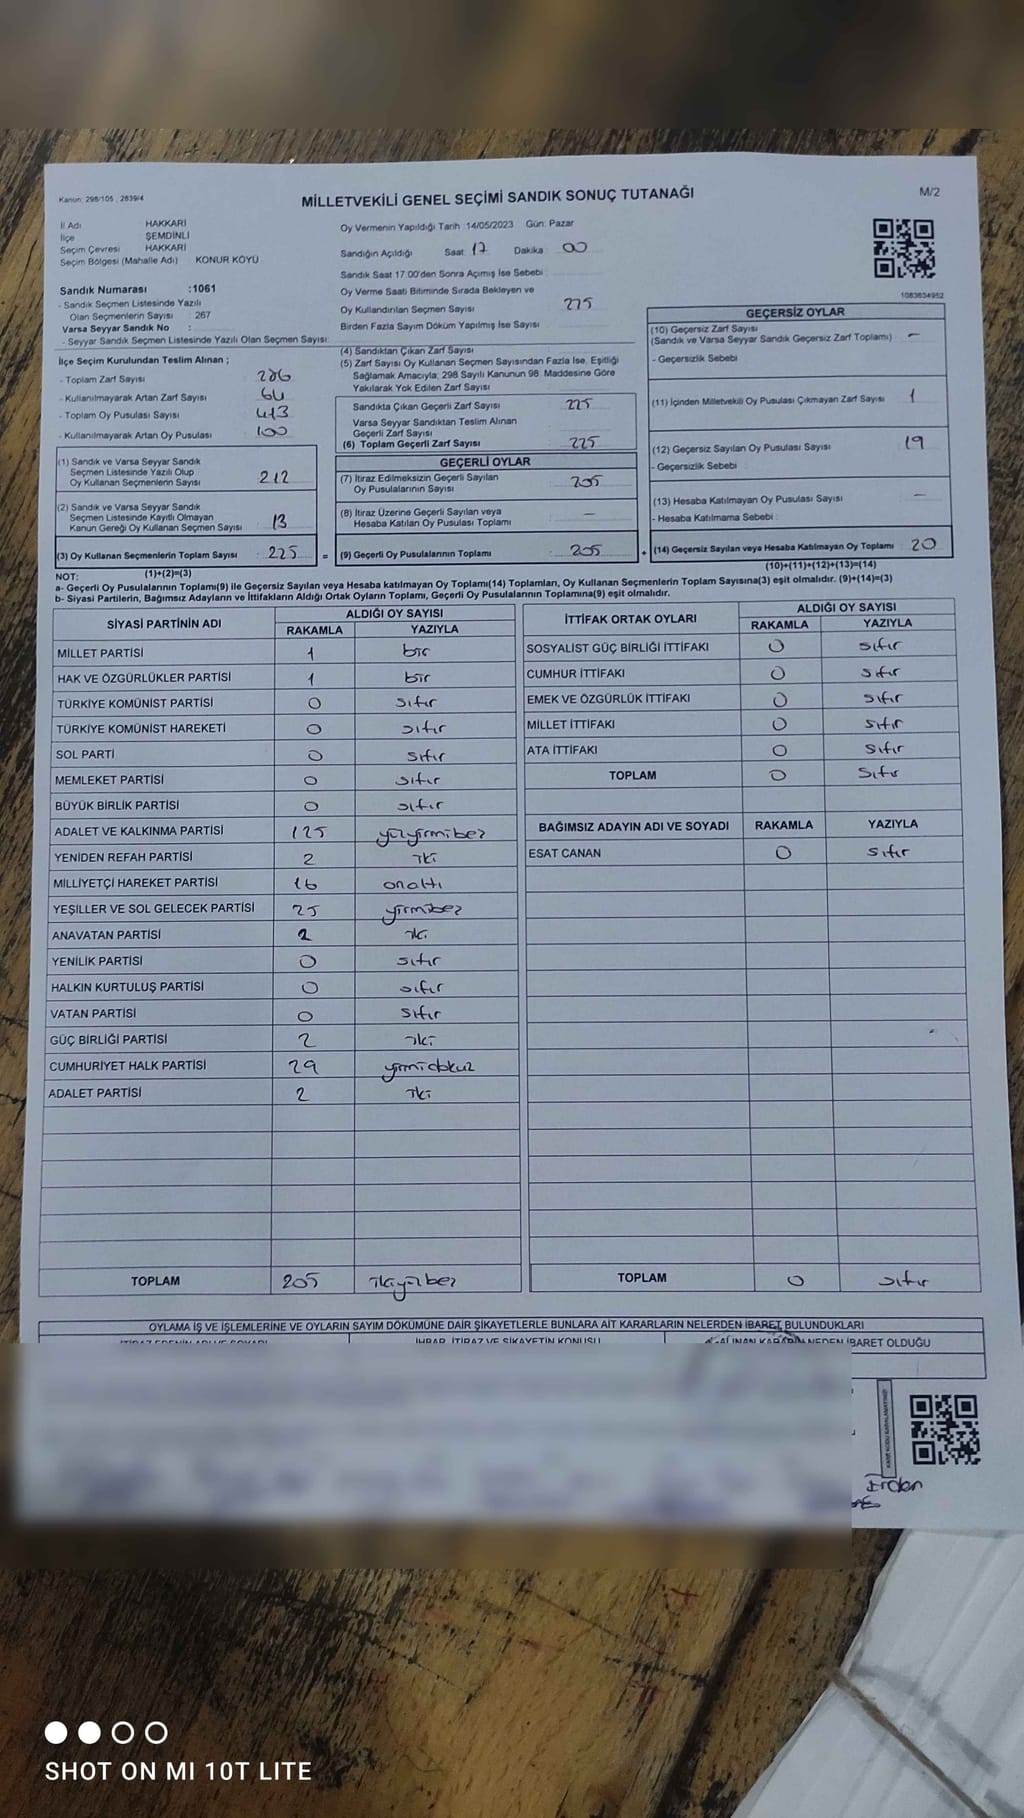 Kanun: 298/105 , 2839/4
MİLLETVEKİLİ GENEL SEÇİMİ SANDIK SONUÇ TUTANAĞI
M/2
İl Adı HAKKARİ
İlçe ŞEMDİNLİ
Seçim Çevresi HAKKARİ
Seçim Bölgesi (Mahalle Adı) KONUR KÖYÜ
Sandık Numarası :1061
- Sandık Seçmen Listesinde Yazılı
Olan Seçmenlerin Sayısı : 267
Varsa Seyyar Sandık No :
- Seyyar Sandık Seçmen Listesinde Yazılı Olan Seçmen Sayısı:
Oy Vermenin Yapıldığı Tarih :14/05/2023 Gün: Pazar
Sandığın Açıldığı Saat 17 Dakika 00
Sandık Saat 17:00'den Sonra Açımış İse Sebebi :
Oy Verme Saati Bitiminde Sırada Bekleyen ve
Oy Kullandırılan Seçmen Sayısı 225
Birden Fazla Sayım Döküm Yapılmış İse Sayısı :
1083634952
İlçe Seçim Kurulundan Teslim Alınan ;
- Toplam Zarf Sayısı 286
- Kullanılmayarak Artan Zarf Sayısı 64
- Toplam Oy Pusulası Sayısı 413
- Kullanılmayarak Artan Oy Pusulası 100
(1) Sandık ve Varsa Seyyar Sandık
Seçmen Listesinde Yazılı Olup
Oy Kullanan Seçmenlerin Sayısı 212
(2) Sandık ve Varsa Seyyar Sandık
Seçmen Listesinde Kayıtlı Olmayan
Kanun Gereği Oy Kullanan Seçmen Sayısı 13
(3) Oy Kullanan Seçmenlerin Toplam Sayısı : 225 =
(1)+(2)=(3)
(4) Sandıktan Çıkan Zarf Sayısı
(5) Zarf Sayısı Oy Kullanan Seçmen Sayısından Fazla İse, Eşitliği
Sağlamak Amacıyla, 298 Sayılı Kanunun 98. Maddesine Göre
Yakılarak Yok Edilen Zarf Sayısı
Sandıkta Çıkan Geçerli Zarf Sayısı 225
Varsa Seyyar Sandıktan Teslim Alınan
Geçerli Zarf Sayısı
(6) Toplam Geçerli Zarf Sayısı 225
GEÇERLİ OYLAR
(7) İtiraz Edilmeksizin Geçerli Sayılan
Oy Pusulalarının Sayısı 205
(8) İtiraz Üzerine Geçerli Sayılan veya
Hesaba Katılan Oy Pusulası Toplamı –
(9) Geçerli Oy Pusulalarının Toplamı 205 +
GEÇERSİZ OYLAR
(10) Geçersiz Zarf Sayısı
(Sandık ve Varsa Seyyar Sandık Geçersiz Zarf Toplamı) –
- Geçersizlik Sebebi
(11) İçinden Milletvekili Oy Pusulası Çıkmayan Zarf Sayısı 1
(12) Geçersiz Sayılan Oy Pusulası Sayısı 19
- Geçersizlik Sebebi :
(13) Hesaba Katılmayan Oy Pusulası Sayısı –
- Hesaba Katılmama Sebebi :
(14) Geçersiz Sayılan veya Hesaba Katılmayan Oy Toplamı : 20
(10)+(11)+(12)+(13)=(14)
NOT:
a- Geçerli Oy Pusulalarının Toplamı(9) ile Geçersiz Sayılan veya Hesaba katılmayan Oy Toplamı(14) Toplamları, Oy Kullanan Seçmenlerin Toplam Sayısına(3) eşit olmalıdır. (9)+(14)=(3)
b- Siyasi Partilerin, Bağımsız Adayların ve İttifakların Aldığı Ortak Oyların Toplamı, Geçerli Oy Pusulalarının Toplamına(9) eşit olmalıdır.
SİYASİ PARTİNİN ADI ALDIĞI OY SAYISI
RAKAMLA YAZIYLA
MİLLET PARTİSİ 1 bir
HAK VE ÖZGÜRLÜKLER PARTİSİ 1 bir
TÜRKİYE KOMÜNİST PARTİSİ 0 sıfır
TÜRKİYE KOMÜNİST HAREKETİ 0 sıfır
SOL PARTİ 0 sıfır
MEMLEKET PARTİSİ 0 sıfır
BÜYÜK BİRLİK PARTİSİ 0 sıfır
ADALET VE KALKINMA PARTİSİ 125 yüzyirmibeş
YENİDEN REFAH PARTİSİ 2 iki
MİLLİYETÇİ HAREKET PARTİSİ 16 onaltı
YEŞİLLER VE SOL GELECEK PARTİSİ 25 yirmibeş
ANAVATAN PARTİSİ 2 iki
YENİLİK PARTİSİ 0 sıfır
HALKIN KURTULUŞ PARTİSİ 0 sıfır
VATAN PARTİSİ 0 sıfır
GÜÇ BİRLİĞİ PARTİSİ 2 iki
CUMHURİYET HALK PARTİSİ 29 yirmidokuz
ADALET PARTİSİ 2 iki
TOPLAM 205 ikiyüzbeş
İTTİFAK ORTAK OYLARI ALDIĞI OY SAYISI
RAKAMLA YAZIYLA
SOSYALİST GÜÇ BİRLİĞİ İTTİFAKI 0 sıfır
CUMHUR İTTİFAKI 0 sıfır
EMEK VE ÖZGÜRLÜK İTTİFAKI 0 sıfır
MİLLET İTTİFAKI 0 sıfır
ATA İTTİFAKI 0 sıfır
TOPLAM 0 sıfır
BAĞIMSIZ ADAYIN ADI VE SOYADI RAKAMLA YAZIYLA
ESAT CANAN 0 sıfır
TOPLAM 0 sıfır
OYLAMA İŞ VE İŞLEMLERİNE VE OYLARIN SAYIM DÖKÜMÜNE DAİR ŞİKAYETLERLE BUNLARA AİT KARARLARIN NELERDEN İBARET BULUNDUKLARI
İTİRAZ EDENİN ADI VE SOYADI İHBAR, İTİRAZ VE ŞİKAYETİN KONUSU ALINAN KARARIN NEDEN İBARET OLDUĞU
SHOT ON MI 10T LITE